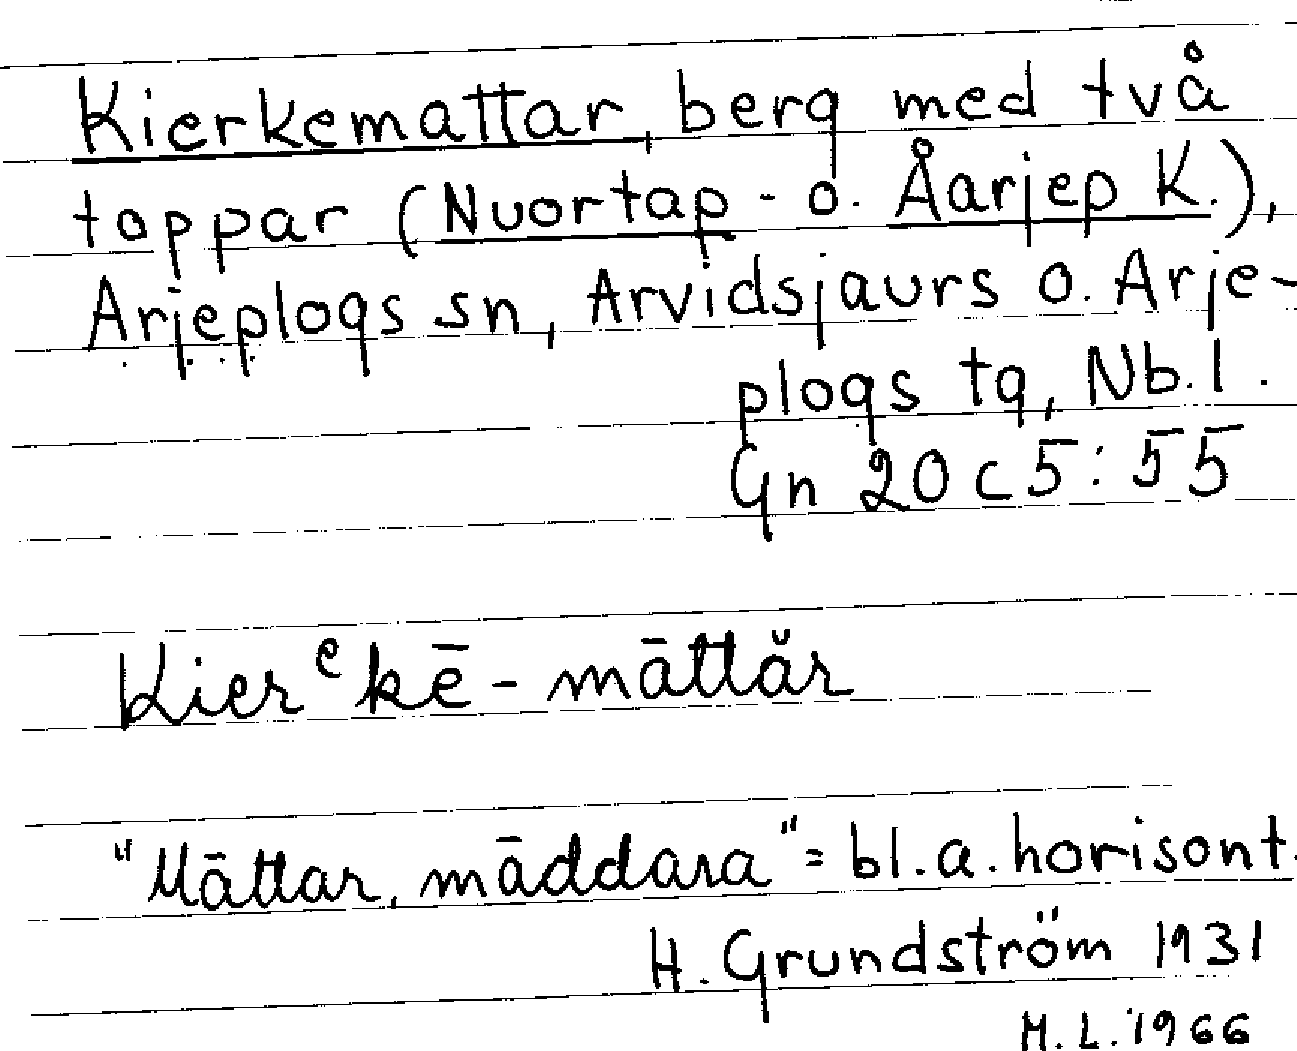 Kierkemattar, berg med två
toppar (Nuortap- o. Åarjep K.),
Arjeplogs sn, Arvidsjaurs o. Arje-
plogs tg, Nb. l.
Gn 20 c 5:55
Kierᵉkē-māttăr
"Māttar, māddara" = bl. a. horisont.
H. Grundström 1931
H. L. 1966